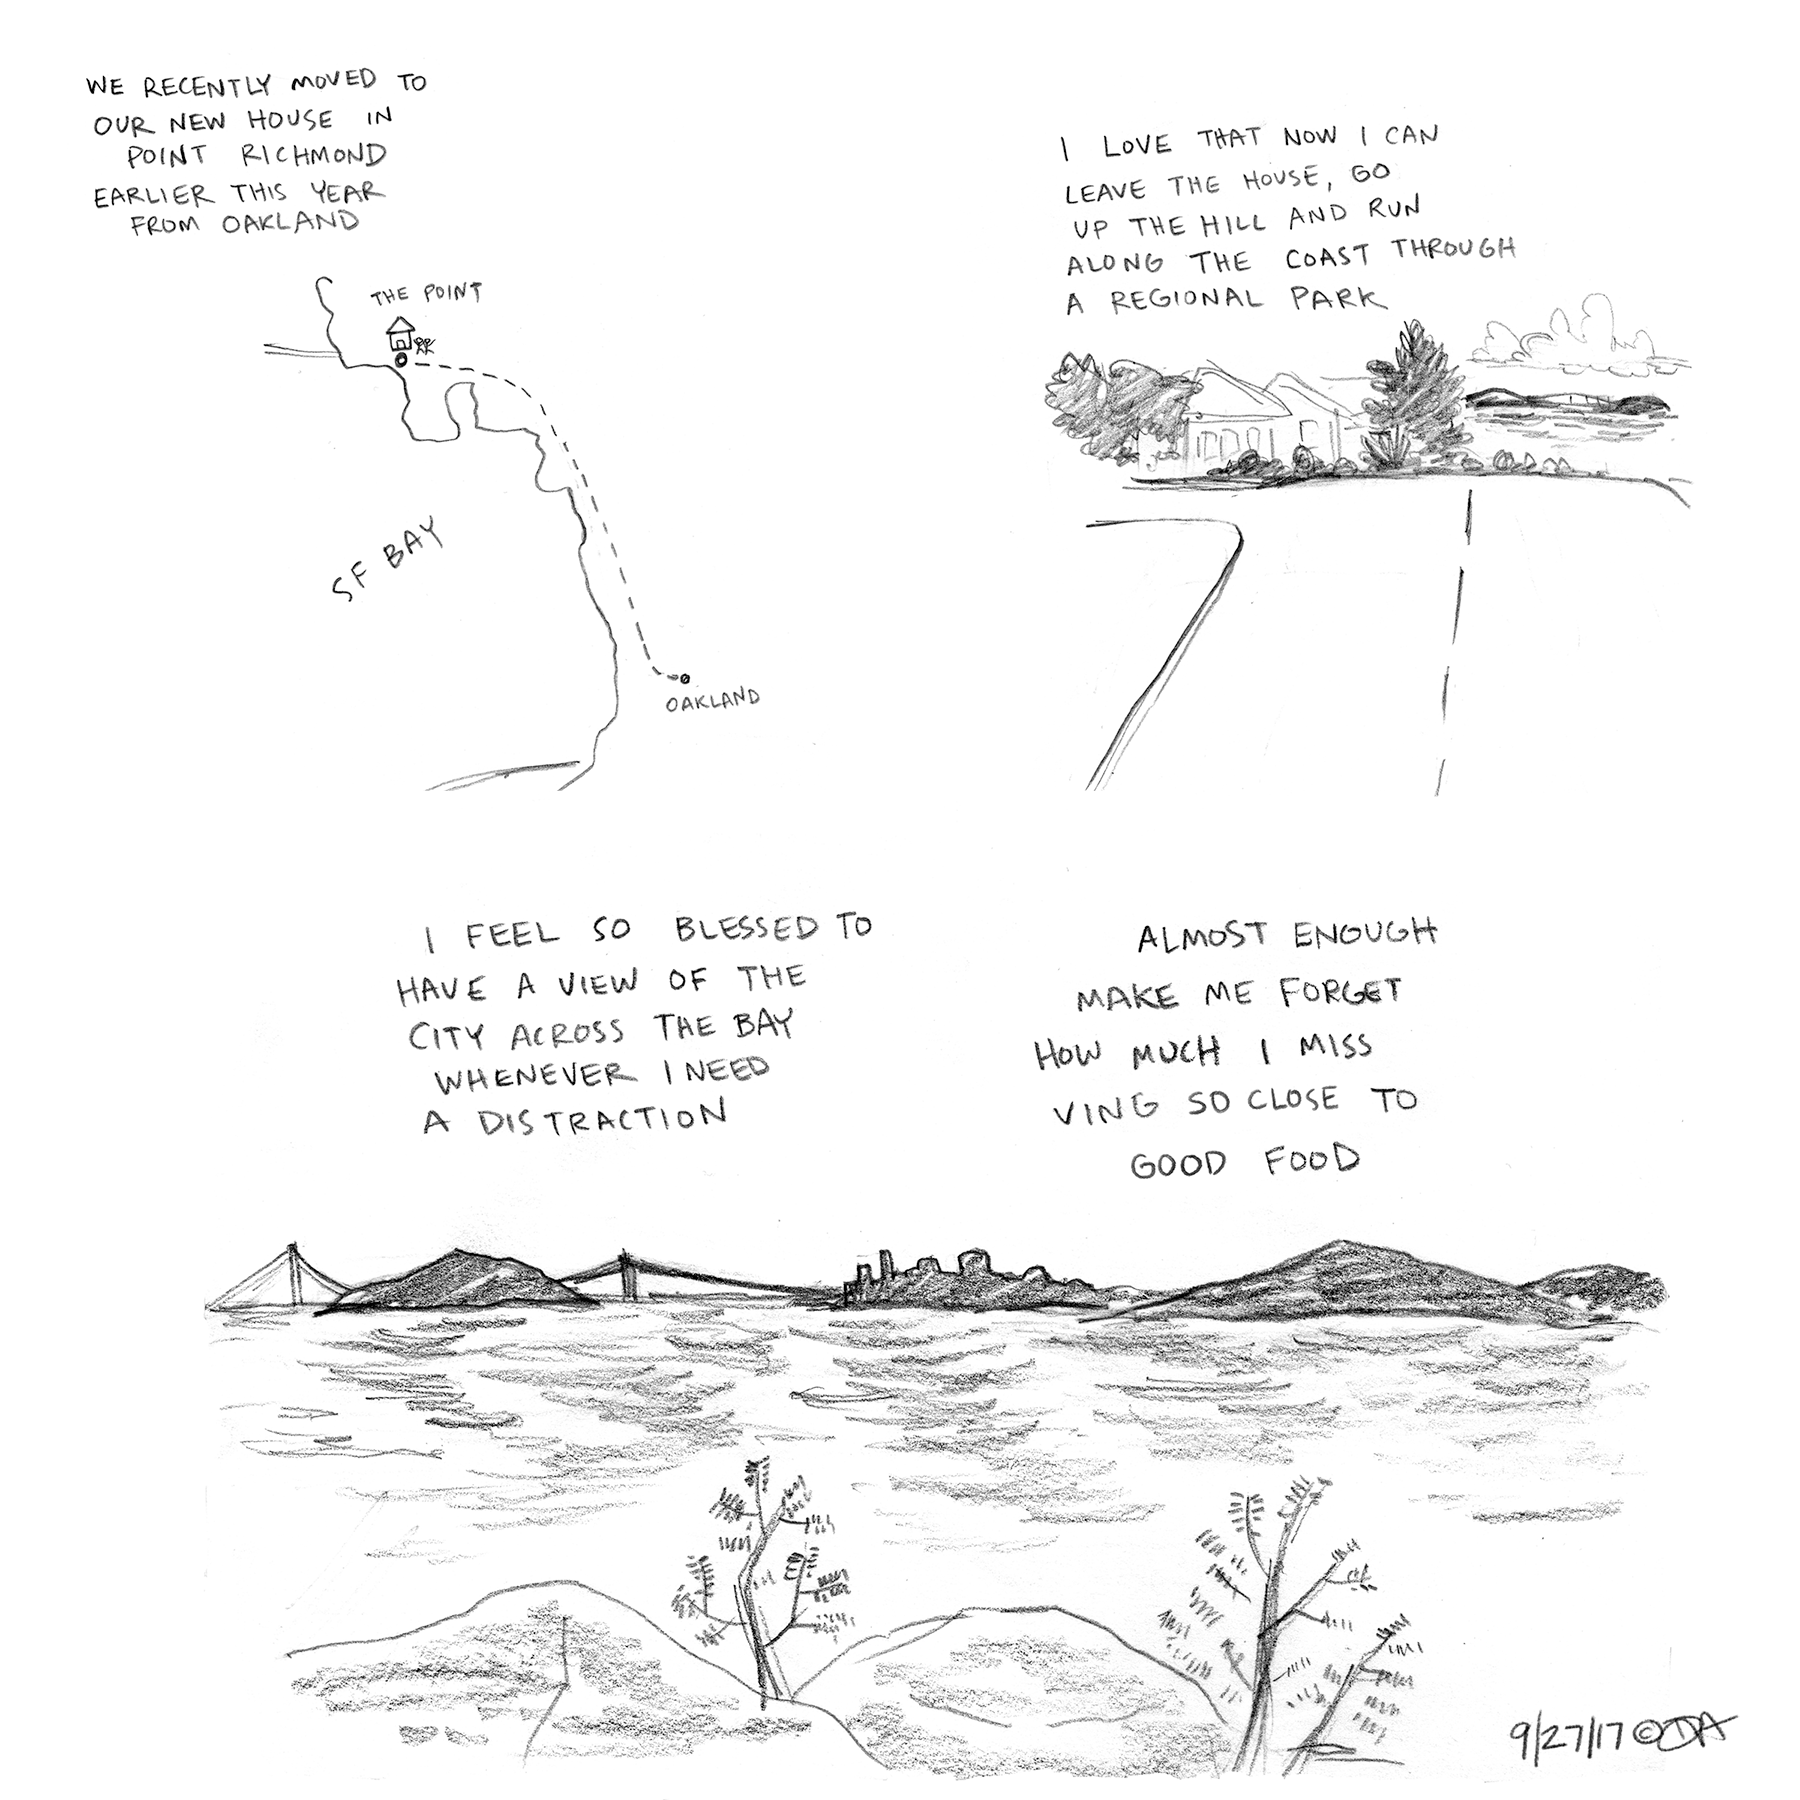 WE RECENTLY MOVED TO
OUR NEW HOUSE IN
POINT RICHMOND
EARLIER THIS YEAR
FROM OAKLAND
THE POINT
SF BAY
OAKLAND
I LOVE THAT NOW I CAN
LEAVE THE HOUSE, GO
UP THE HILL AND RUN
ALONG THE COAST THROUGH
A REGIONAL PARK
I FEEL SO BLESSED TO
HAVE A VIEW OF THE
CITY ACROSS THE BAY
WHENEVER I NEED
A DISTRACTION
ALMOST ENOUGH
MAKE ME FORGET
HOW MUCH I MISS
VING SO CLOSE TO
GOOD FOOD
9/27/17 © DA